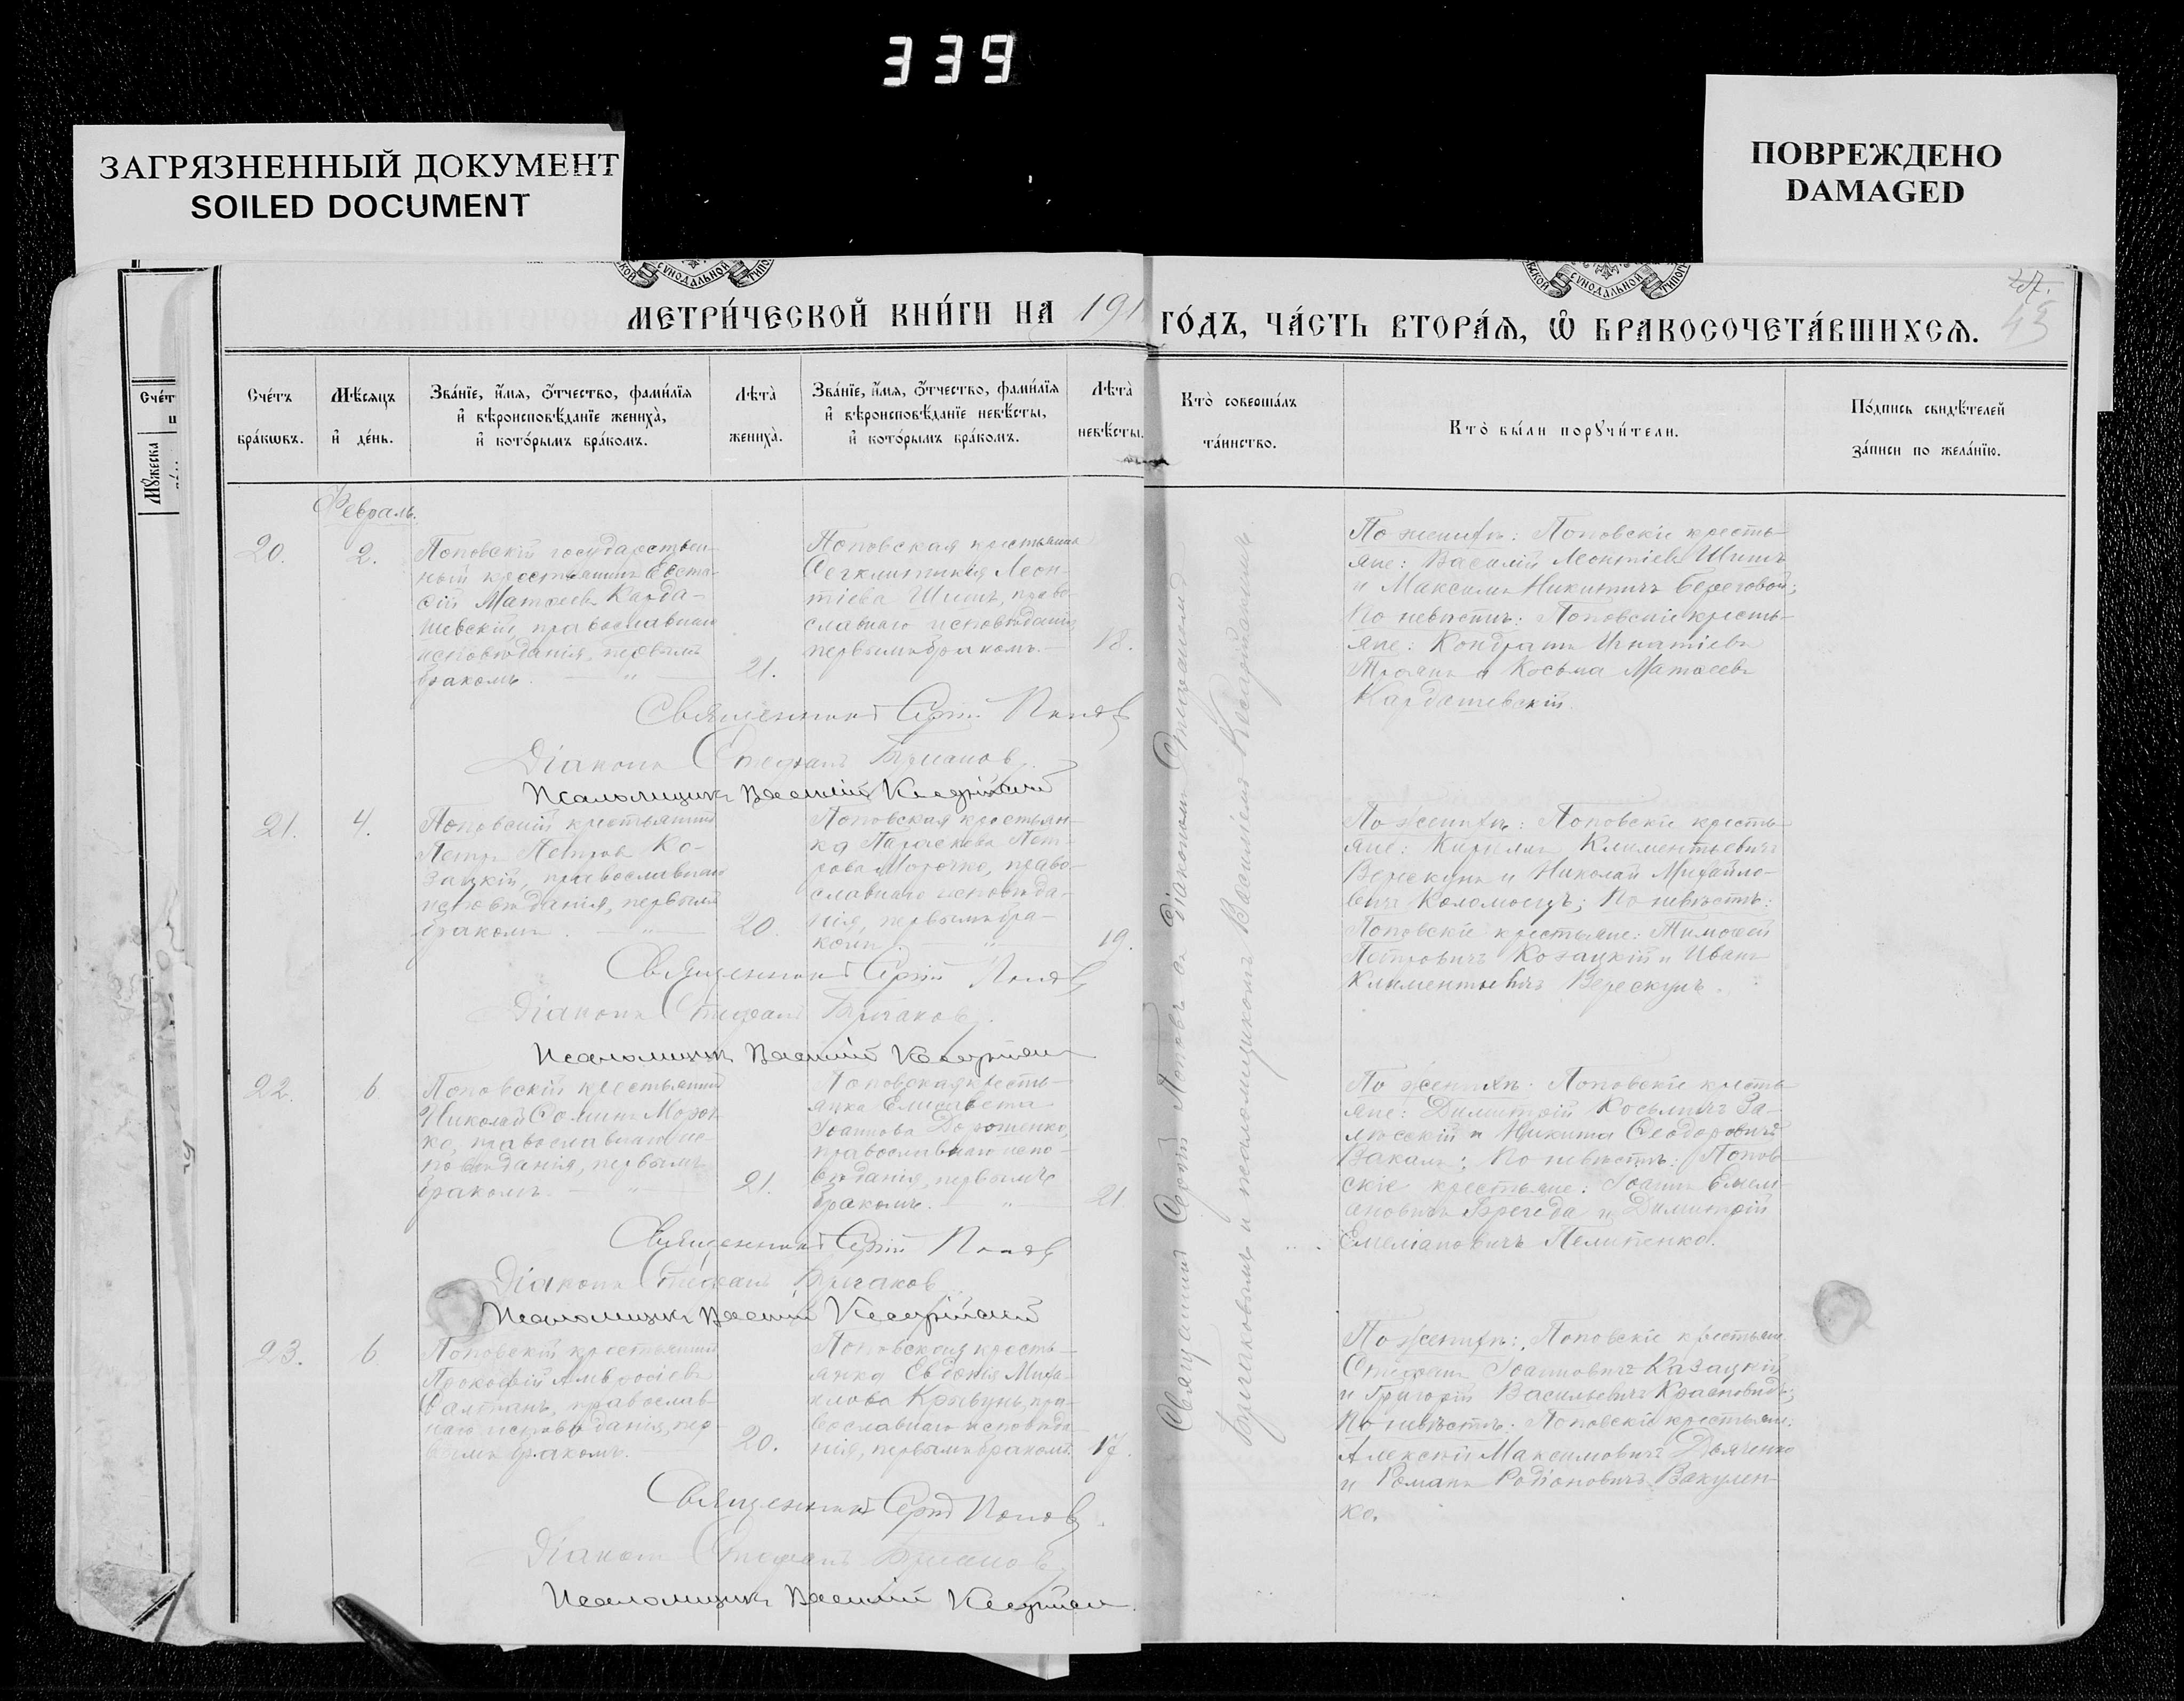 339
ЗАГРЯЗНЕННЫЙ ДОКУМЕНТ
SOILED DOCUMENT
ПОВРЕЖДЕНО
DAMAGED
МЕТРИ́ЧЕСКОЙ КНИ́ГИ НА 191
ГО́ДЪ, ЧА́СТЬ ВТОРА́Ѧ, Ѡ҆ БРАКОСОЧЕТА́ВШИХСѦ.
43
Сче́тъ
бра́кѡвъ.
Мѣ́сяцъ
и҆ де́нь.
Зва́нїе, и҆́мѧ, ѻ҆́тчество, фами́лїѧ
и҆ вѣроисповѣ́данїе жениха̀,
и҆ кото́рымъ бра́комъ.
Лѣта̀
жениха̀.
Зва́нїе, и҆́мѧ, ѻ҆́тчество, фами́лїѧ
и҆ вѣроисповѣ́данїе невѣ́сты,
и҆ кото́рымъ бра́комъ.
Лѣта̀
невѣ́сты.
Кто̀ соверша́лъ
та́инство.
Кто̀ бы́ли порꙋчи́тели.
По́дпись свидѣ́телей
за́писи по жела́нїю.
Февраль.
20.
2.
Поповскій государствен-
ный крестьянинъ Евста-
фій Матѳеевъ Карда-
шевскій, православнаго
исповѣданія, первымъ
бракомъ.
21.
Поповская крестьянка
Леон-
тіева Шишъ, право-
славнаго исповѣданія,
первымъ бракомъ.
18.
По женихѣ: Поповскіе кресть-
яне: Василій Леонтіевъ Шишъ
и Максимъ Никитичъ Береговой;
По невѣстѣ: Поповскіе кресть-
яне: Кондратъ Игнатіевъ
Троянъ и Косьма Матѳеевъ
Кардашевскій.
Священникъ Сергій Поповъ
Діаконъ Стефанъ
Псаломщикъ Василій Кесарійскій
21.
4.
Поповскій крестьянинъ
Петръ Петровъ Ко-
зацкій, православнаго
исповѣданія, первымъ
бракомъ.
20.
Поповская крестьян-
ка Параскева Пет-
рова Морочко, право-
славнаго исповѣда-
нія, первымъ бра-
комъ.
19.
По женихѣ: Поповскіе кресть-
яне: Кириллъ Климентьевичъ
Верескунъ и Николай Михайло-
вичъ Коломоецъ; По невѣстѣ:
Поповскіе крестьяне: Тимоѳей
Петровичъ Козацкій и Иванъ
Климентьевичъ Верескунъ.
Священникъ Сергій Поповъ
Діаконъ Стефанъ
Псаломщикъ Василій
22.
6.
Поповскій крестьянинъ
Николай Ѳоминъ Мороч-
ко, православнаго ис-
повѣданія, первымъ
бракомъ.
21.
Поповская кресть-
янка Елисавета
Іоаннова Дорошенко,
православнаго испо-
вѣданія, первымъ
бракомъ.
21.
По женихѣ: Поповскіе кресть-
яне: Димитрій Косьмичъ За-
и Никита Ѳеодоровичъ
Вакалъ; По невѣстѣ: Попов-
скіе крестьяне: Іоаннъ Емели-
ановичъ и Димитрій
Емеліановичъ Пелипенко.
Священникъ Сергій Поповъ
Діаконъ Стефанъ
Псаломщикъ Василій Кесарійскій
23.
6
Поповскій крестьянинъ
Прокофій Амвросіевъ
православ-
наго исповѣданія, пер-
вымъ бракомъ.
20.
Поповская кресть-
янка Евдокія Миха-
илова Кривунь, пра-
вославнаго исповѣда-
нія, первымъ бракомъ.
17.
По женихѣ: Поповскіе крестьяне
Стефанъ Іоанновичъ Казацкій
и Григорій Васильевичъ Красновидъ;
По невѣстѣ: Поповскіе крестьяне:
Алексѣй Максимовичъ Дьяченко
и Романъ Родіоновичъ Вакулен-
ко.
Священникъ Сергій Поповъ.
Діаконъ Стефанъ
Псаломщикъ Василій
Священникъ Сергій Поповъ съ діакономъ Стефаномъ
и псаломщикомъ Василіемъ Кесарійскимъ